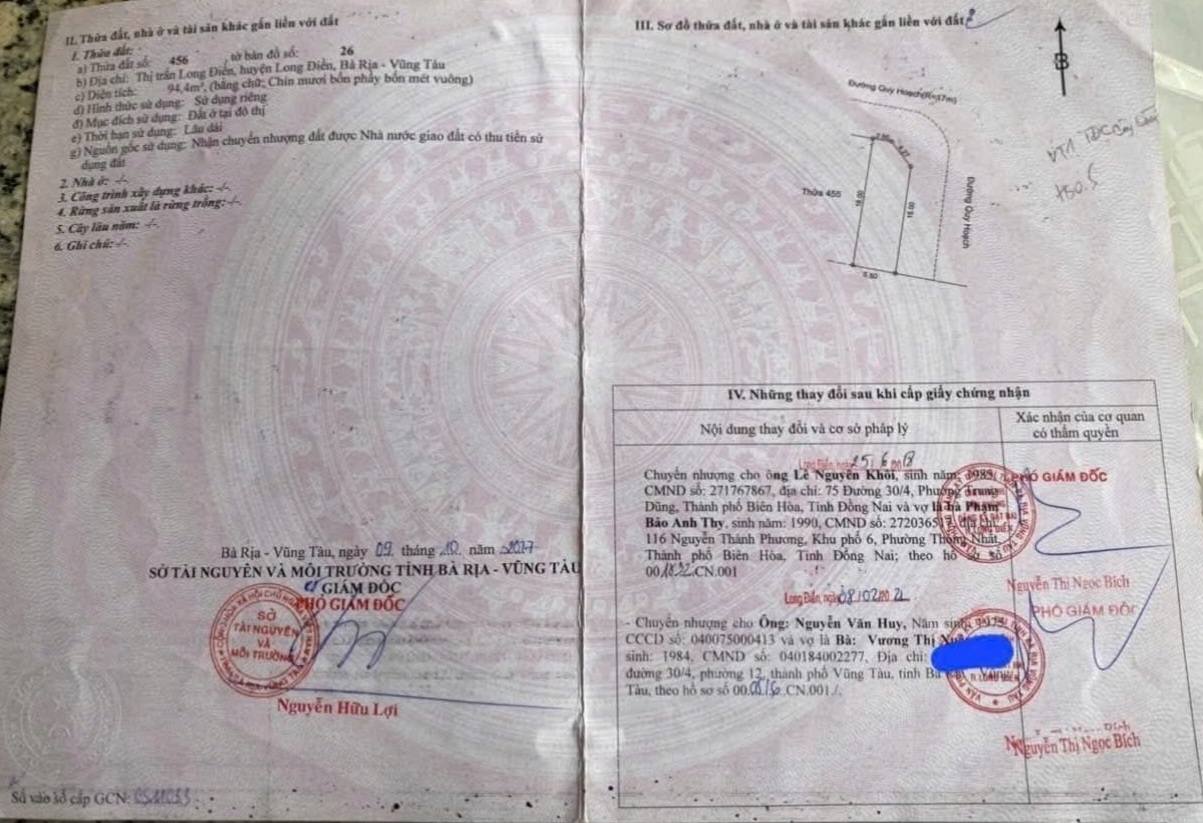 II. Thửa đất, nhà ở và tài sản khác gắn liền với đất
1. Thửa đất:
a) Thửa đất số: 456 tờ bản đồ số: 26
b) Địa chỉ: Thị trấn Long Điền, huyện Long Điền, Bà Rịa - Vũng Tàu
c) Diện tích: 94,4m², (bằng chữ: Chín mươi bốn phẩy bốn mét vuông)
d) Hình thức sử dụng: Sử dụng riêng
đ) Mục đích sử dụng: Đất ở tại đô thị
e) Thời hạn sử dụng: Lâu dài
g) Nguồn gốc sử dụng: Nhận chuyển nhượng đất được Nhà nước giao đất có thu tiền sử
dụng đất
2. Nhà ở: -/-
3. Công trình xây dựng khác: -/-
4. Rừng sản xuất là rừng trồng: -/-
5. Cây lâu năm: -/-
6. Ghi chú: -/-
Bà Rịa - Vũng Tàu, ngày 09 tháng 10 năm 2017
SỞ TÀI NGUYÊN VÀ MÔI TRƯỜNG TỈNH BÀ RỊA - VŨNG TÀU
GIÁM ĐỐC
PHÓ GIÁM ĐỐC
SỞ
TÀI NGUYÊN
VÀ
MÔI TRƯỜNG
Nguyễn Hữu Lợi
Số vào sổ cấp GCN:
III. Sơ đồ thửa đất, nhà ở và tài sản khác gắn liền với đất
B
Đường Quy Hoạch
Thửa 455
18.00
15.00
Đường Quy Hoạch
5.50
VT1 TĐC
IV. Những thay đổi sau khi cấp giấy chứng nhận
Nội dung thay đổi và cơ sở pháp lý
Xác nhận của cơ quan
có thẩm quyền
Long Điền, ngày 25/6/2018
Chuyển nhượng cho ông Lê Nguyên Khôi, sinh năm: 1985,
CMND số: 271767867, địa chỉ: 75 Đường 30/4, Phường Trung
Dũng, Thành phố Biên Hòa, Tỉnh Đồng Nai và vợ là bà Phạm
Bảo Anh Thy, sinh năm: 1990, CMND số: 27203651, địa chỉ:
116 Nguyễn Thành Phương, Khu phố 6, Phường Thống Nhất,
Thành phố Biên Hòa, Tỉnh Đồng Nai; theo hồ sơ số
.CN.001
PHÓ GIÁM ĐỐC
Nguyễn Thị Ngọc Bích
Long Điền, ngày 08/02/2021
- Chuyển nhượng cho Ông: Nguyễn Văn Huy, Năm sinh: 1975,
CCCD số: 040075000413 và vợ là Bà: Vương Thị
sinh: 1984, CMND số: 040184002277, Địa chỉ:
đường 30/4, phường 12, thành phố Vũng Tàu, tỉnh Bà Rịa - Vũng
Tàu, theo hồ sơ số .CN.001./.
PHÓ GIÁM ĐỐC
Nguyễn Thị Ngọc Bích